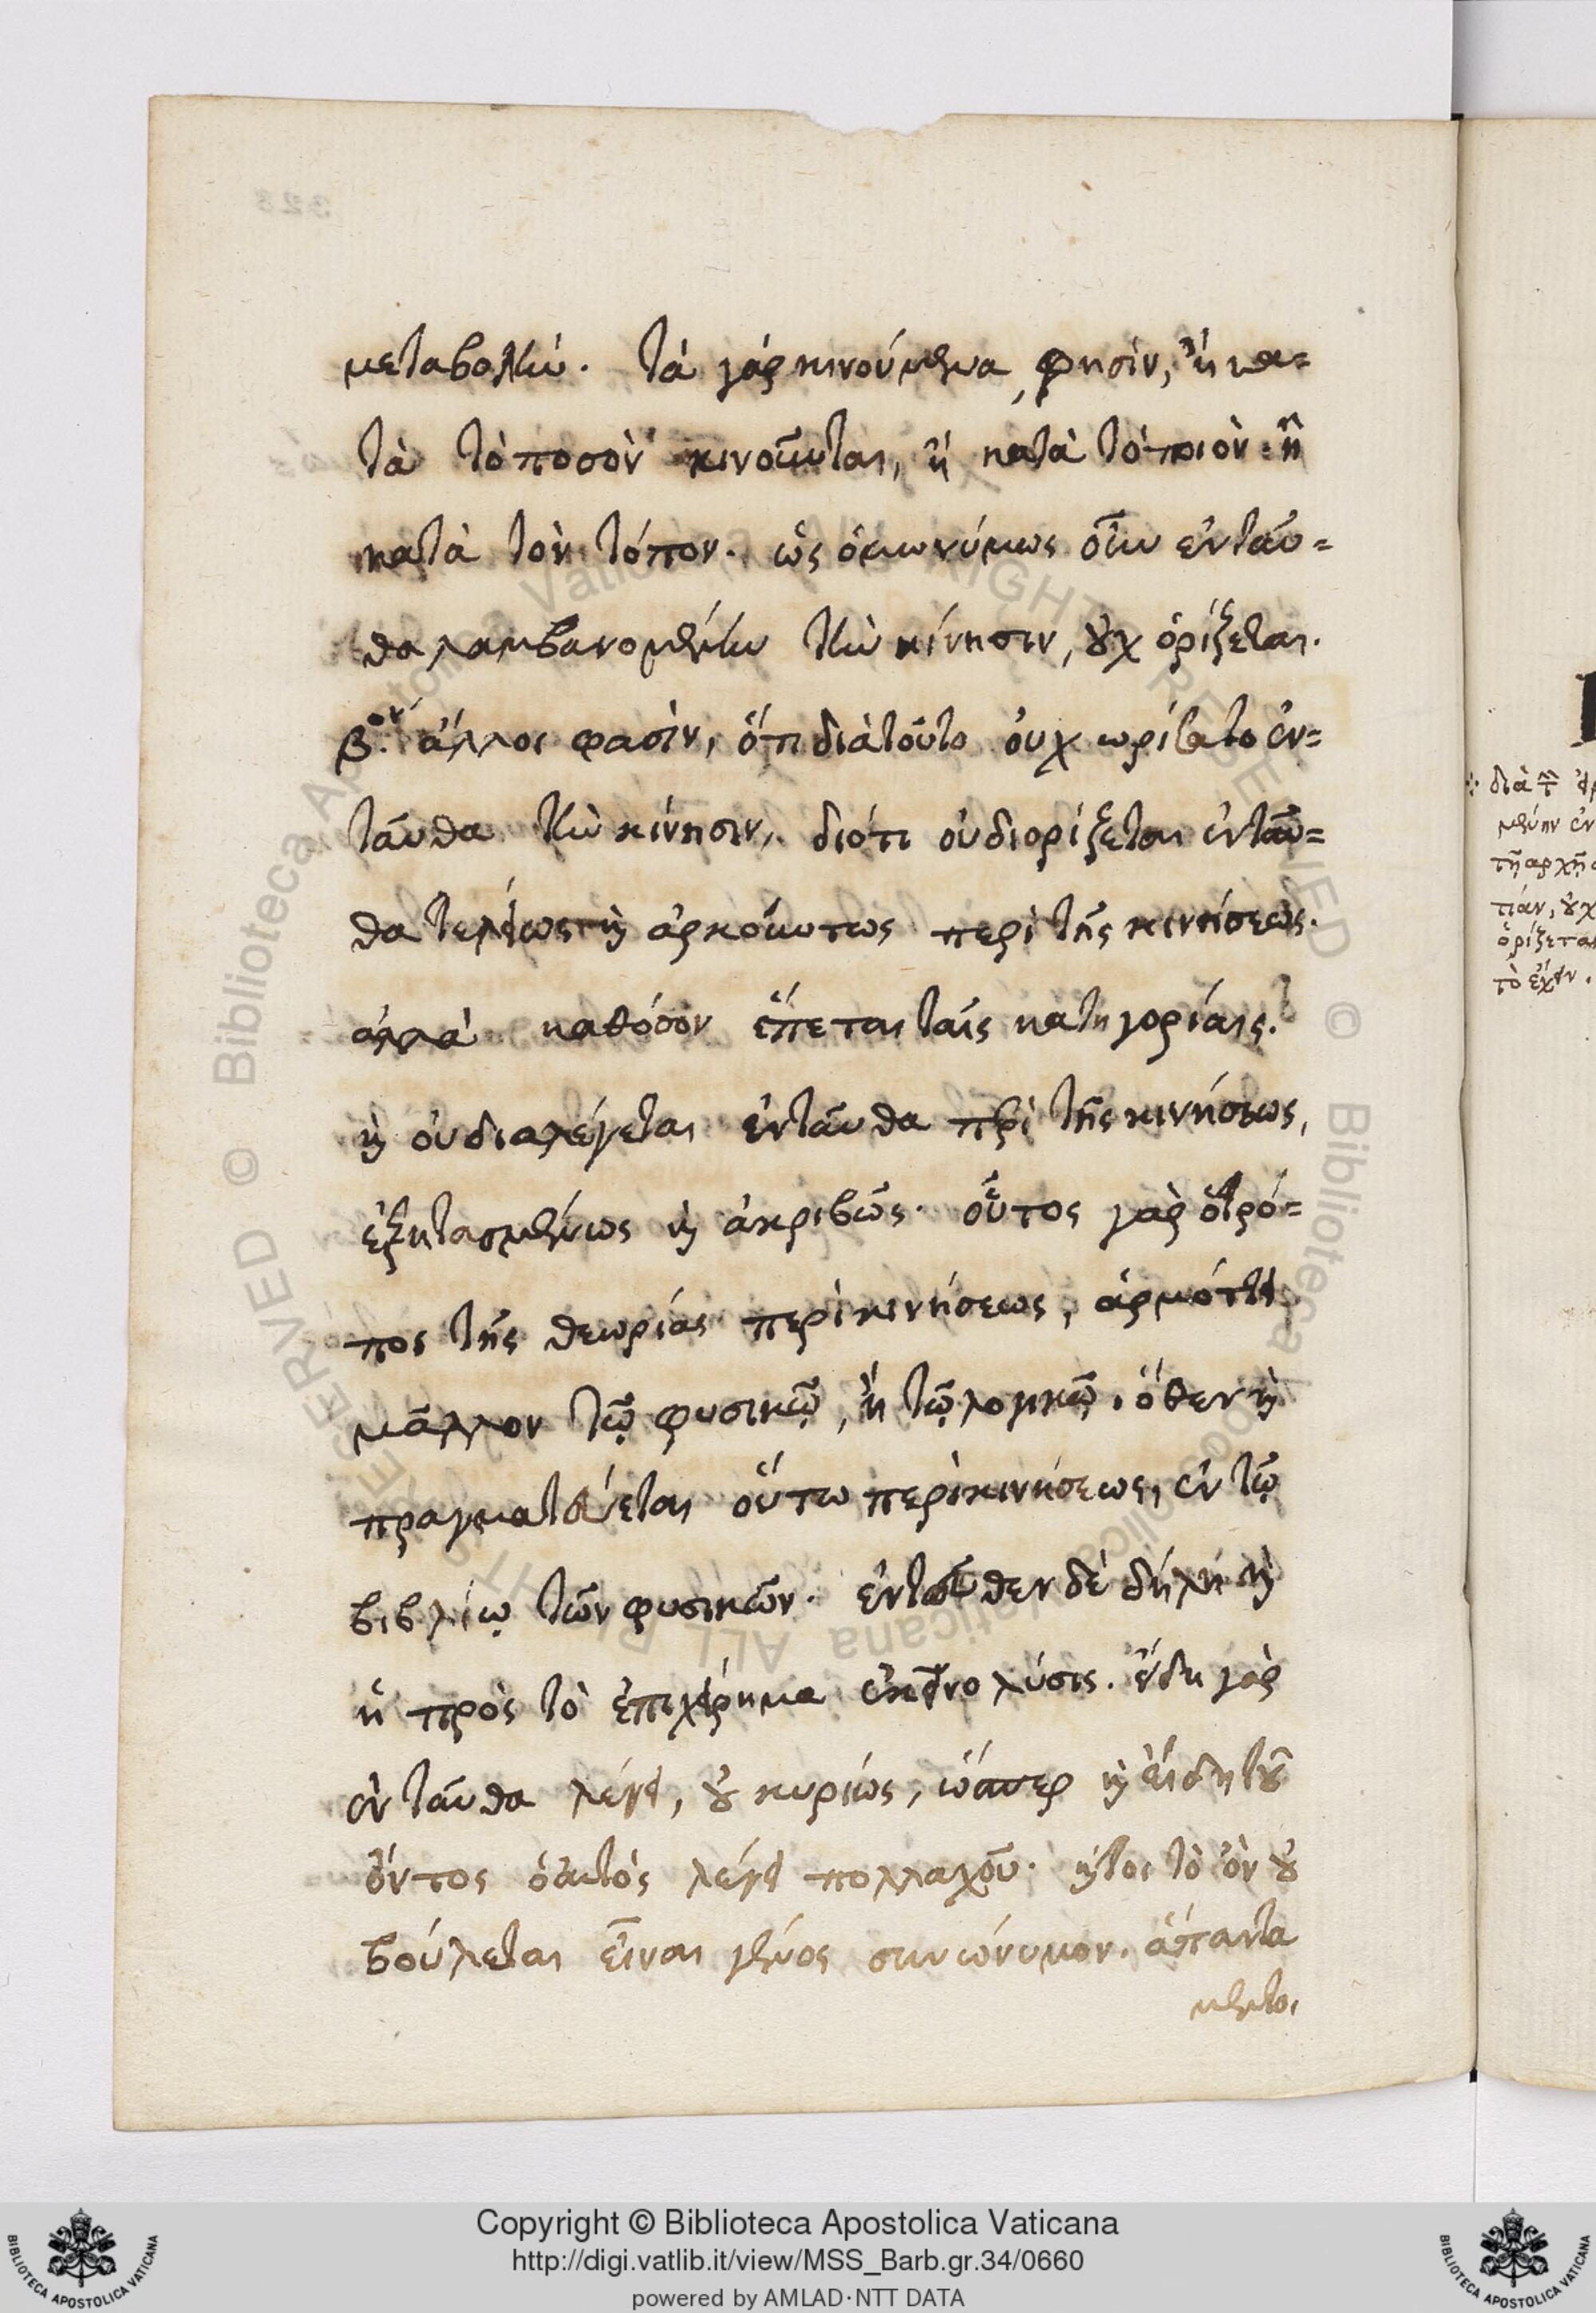 μεταβολὴν. τὰ γὰρ κινούμενα φησὶν, ἢ κα=
τὰ τὸ ποσὸν κινοῦνται, ἢ κατὰ τὸ ποιὸν ἢ
κατὰ τὸν τόπον. ὡς ὁμωνύμως οὖν ἐνταῦ=
θα λαμβανομένην τὴν κίνησιν, οὐχ ὁρίζεται.
β.ον ἄλλοι φασὶν, ὅτι διὰ τοῦτο οὐχ ὡρίσατο ἐν=
ταῦθα τὴν κίνησιν, διότι οὐ διορίζεται ἐνταῦ=
θα τελείως καὶ ἀρκούντως περὶ τῆς κινήσεως.
ἀλλὰ καθόσον ἕπεται ταῖς κατηγορίαις.
καὶ οὐ διαλέγεται ἐνταῦθα περὶ τῆς κινήσεως,
ἐξητασμένως καὶ ἀκριβῶς. οὗτος γὰρ ὁ τρό=
πος τῆς θεωρίας περὶ κινήσεως, ἁρμόττει
μᾶλλον τῷ φυσικῷ, ἢ τῷ λογικῷ. ὅθεν καὶ
πραγματεύεται οὕτω περὶ κινήσεως, ἐν τῷ
βιβλίῳ τῶν φυσικῶν. ἐντεῦθεν δὲ δήλη καὶ
ἡ πρὸς τὸ ἐπιχείρημα ἐκεῖνο λύσις. εἴδη γὰρ
ἐνταῦθα λέγει, οὐ κυρίως, ὥσπερ καὶ εἴδη τοῦ
ὄντος ὁ αὐτὸς λέγει πολλαχοῦ. καίτοι τὸ ὂν οὐ
βούλεται εἶναι γένος συνώνυμον. ἅπαντα
μέντοι
διὰ τί
μένην ἐν
τῇ ἀρχῇ
τιαν, οὐχ
ὁρίζεται
τὸ ἔχειν.
Copyright © Biblioteca Apostolica Vaticana
http://digi.vatlib.it/view/MSS_Barb.gr.34/0660
powered by AMLAD·NTT DATA
BIBLIOTECA APOSTOLICA VATICANA
BIBLIOTECA APOSTOLICA VATICANA